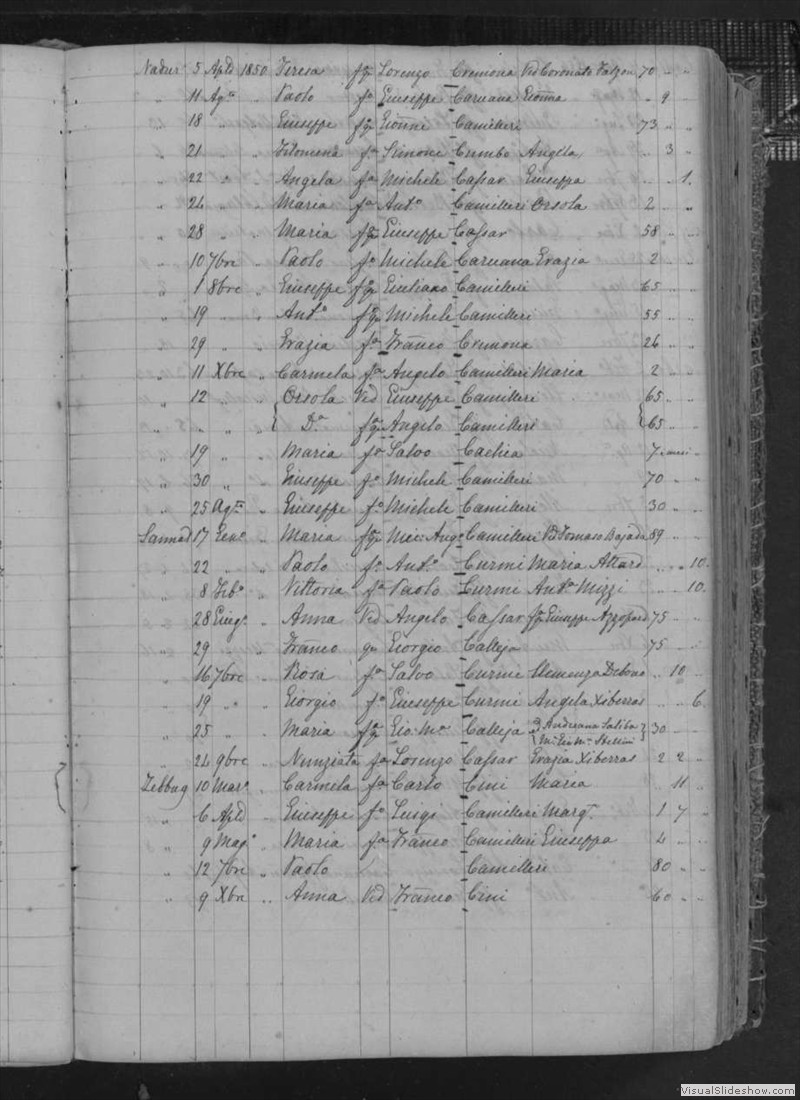 Nadur 5 Aple 1850 Teresa fqm Lorenzo Cremona Vid Coronato 70 " "
" 11 Agto " Paolo fo Giuseppe Caruana Gionna " 9 "
" 18 " " Giuseppe fqm Gionne Camilleri 73 " "
" 21 " " Filomena fa Simone Cumbo Angela " 3 "
" 22 " " Angela fa Michele Cassar Giuseppa " " 1
" 24 " " Maria fa Anto Camilleri Orsola 2 " "
" 28 " " Maria fqm Giuseppe Cassar 58 " "
" 10 7bre " Paolo fo Michele Caruana Grazia 2 " "
" 1 8bre " Giuseppe fqm Giuliano Camilleri 65 " "
" 19 " " Anto fqm Michele Camilleri 55 " "
" 29 " " Grazia fa Franco Cremona 26 " "
" 11 Xbre " Carmela fa Angelo Camilleri Maria 2 " "
" 12 " " Orsola Vid Giuseppe Camilleri 65 " "
" " " " Da fqm Angelo Camilleri 65 " "
" 19 " " Maria fa Salvo Cachia 7
" 30 " " Giuseppe fo Michele Camilleri 70 " "
" 25 Agto " Giuseppe fo Michele Camilleri 30 " "
Sannad 17 Geno " Maria fqm Mic: Ango Camilleri Vid Tomaso Bajada 89 " "
" 22 " " Paolo fo Anto Curmi Maria Attard " " 10
" 8 Febo " Vittoria fa Paolo Curmi Anta Mizzi " " 10
" 28 Giugo " Anna Vid Angelo Cassar fqm Giuseppe Azzopardi 75 " "
" 29 " " Franco qm Giorgio Calleja 75 " "
" 16 7bre " Rosa fa Salvo Curmi Clemenza Debono " 10 "
" 19 " " Giorgio fo Giuseppe Curmi Angela Xiberras " " 6
" 25 " " Maria fqm Gio: Ma Calleja Andreana Saliba 30 " "
" 24 9bre " Nunziata fa Lorenzo Cassar Grazia Xiberras 2 2 "
Zebbug 10 Maro " Carmela fa Carlo Cini Maria " 11 "
" 6 Aple " Giuseppe fo Luigi Camilleri Margta 1 7 "
" 9 Mago " Maria fa Franco Camilleri Giuseppa 4 " "
" 12 7bre " Paolo / Camilleri 80 " "
" 9 Xbre " Anna Vid Franco Cini 60 " "
VisualSlideshow.com